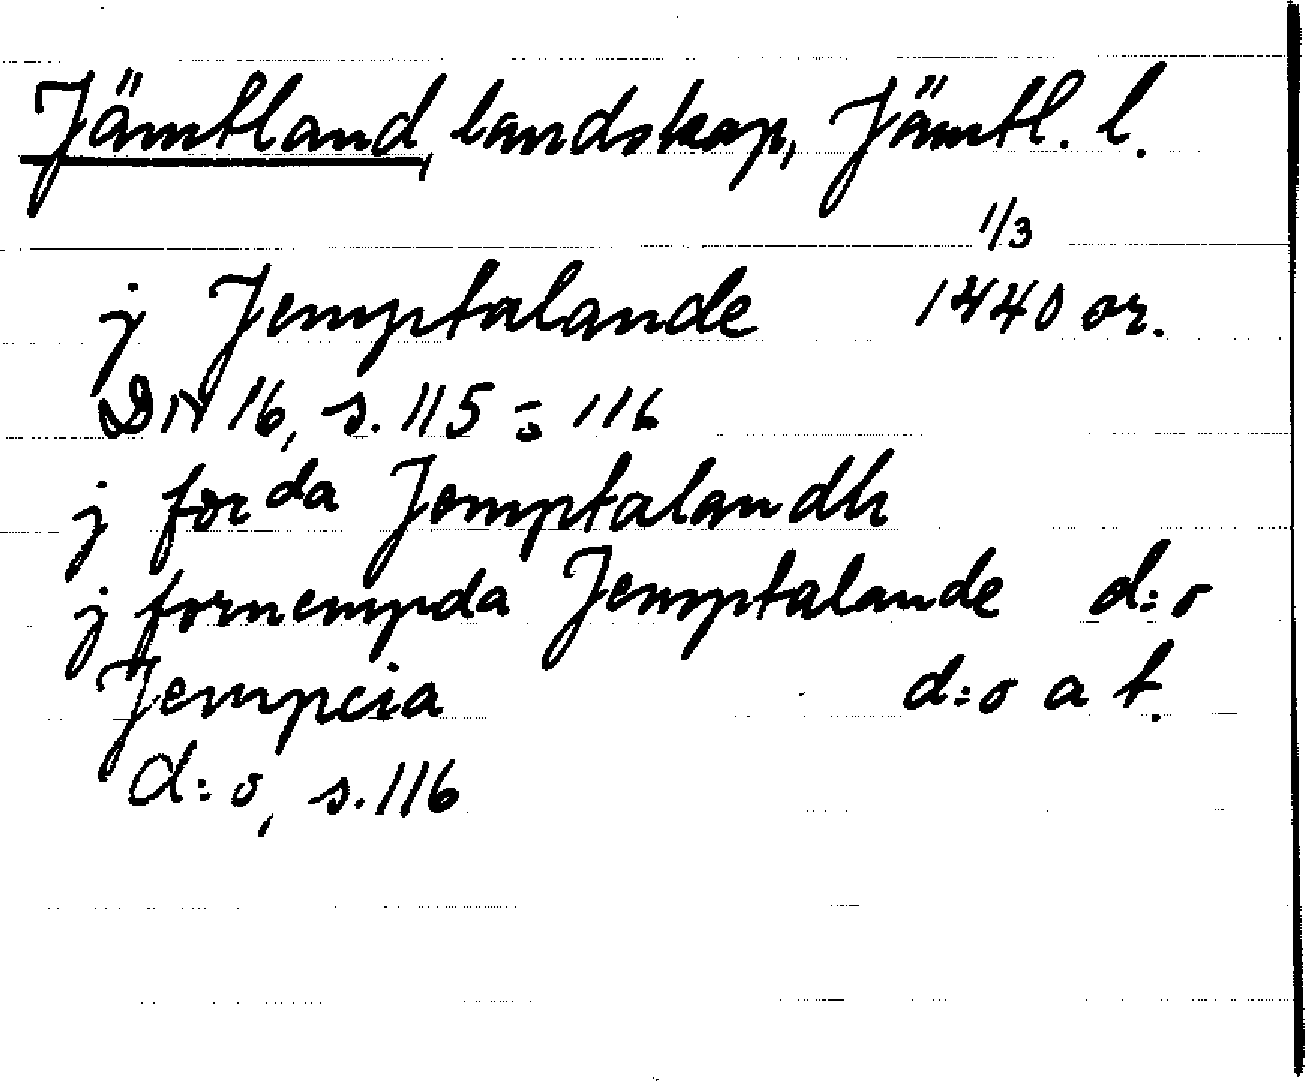 Jämtland, landskap, Jämtl. l.
1/3
j Jemptalande 1440 or.
DN 16, s. 115 - 116
j for da Jemptalandh
j fornempda Jemptalande d:o
Jempcia d:o a t.
d:o, s. 116